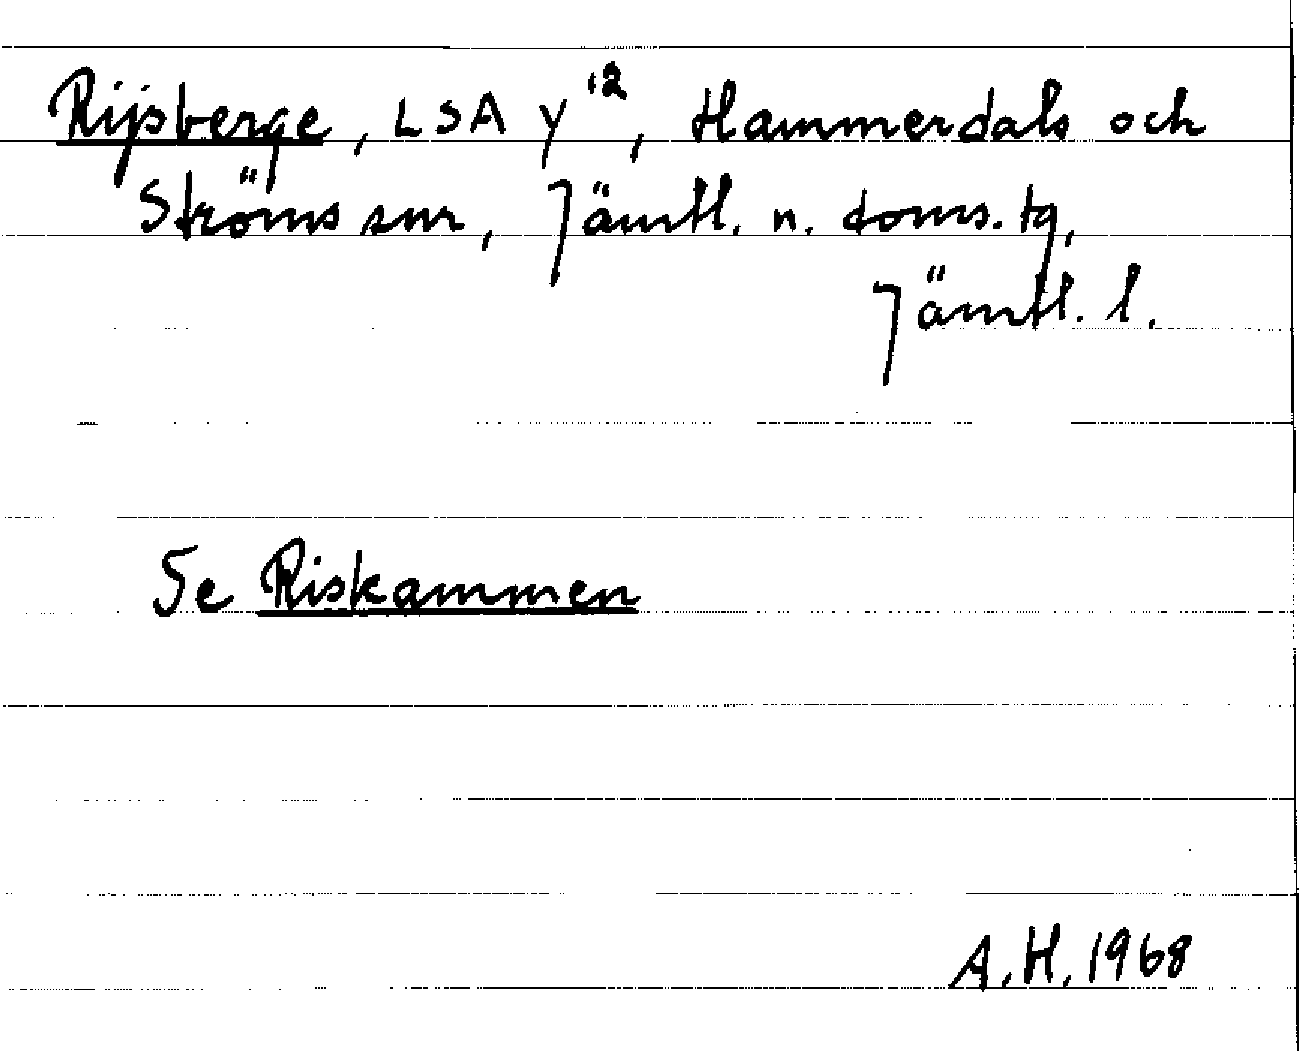 Rijsberge, LSA Y¹², Hammerdals och
Ströms snr, Jämtl. n. doms. tg,
Jämtl. l.
Se Riskammen
A.H. 1968